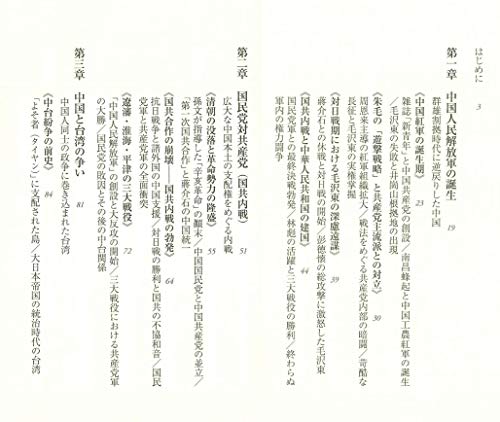 はじめに 3
第一章 中国人民解放軍の誕生 19
群雄割拠時代に逆戻りした中国
《中国紅軍の誕生期》 23
雑誌「新青年」と中国共産党の創設/南昌蜂起と中国工農紅軍の誕生
/毛沢東の失敗と井岡山根拠地の出現
《朱毛の「遊撃戦略」と共産党主流派との対立》 30
周恩来主導の紅軍組織拡大/戦法をめぐる共産党内部の暗闘/苛酷な
長征と毛沢東の実権掌握
《対日戦期における毛沢東の深慮遠謀》 39
蔣介石との休戦と対日戦の開始/彭徳懐の総攻撃に激怒した毛沢東
《国共内戦と中華人民共和国の建国》 44
国民党軍との最終決戦勃発/林彪の活躍と三大戦役の勝利/終わらぬ
軍内の権力闘争
第二章 国民党対共産党(国共内戦) 51
広大な中国本土の支配権をめぐる内戦
《清朝の没落と革命勢力の隆盛》 55
孫文が指導した「辛亥革命」の顚末/中国国民党と中国共産党の並立/
「第一次国共合作」と蔣介石の中国統一
《国共合作の崩壊――国共内戦の勃発》 64
抗日戦争と諸外国の中国支援/対日戦の勝利と国共の不協和音/国民
党軍と共産党軍の全面衝突
《遼瀋・淮海・平津の三大戦役》 72
「中国人民解放軍」の創設と大反攻の開始/三大戦役における共産党軍
の大勝/国民党の敗因とその後の中台関係
第三章 中国と台湾の争い 81
中国人同士の政争に巻き込まれた台湾
《中台紛争の前史》 84
「よそ者(タイヤン)」に支配された島/大日本帝国の統治時代の台湾